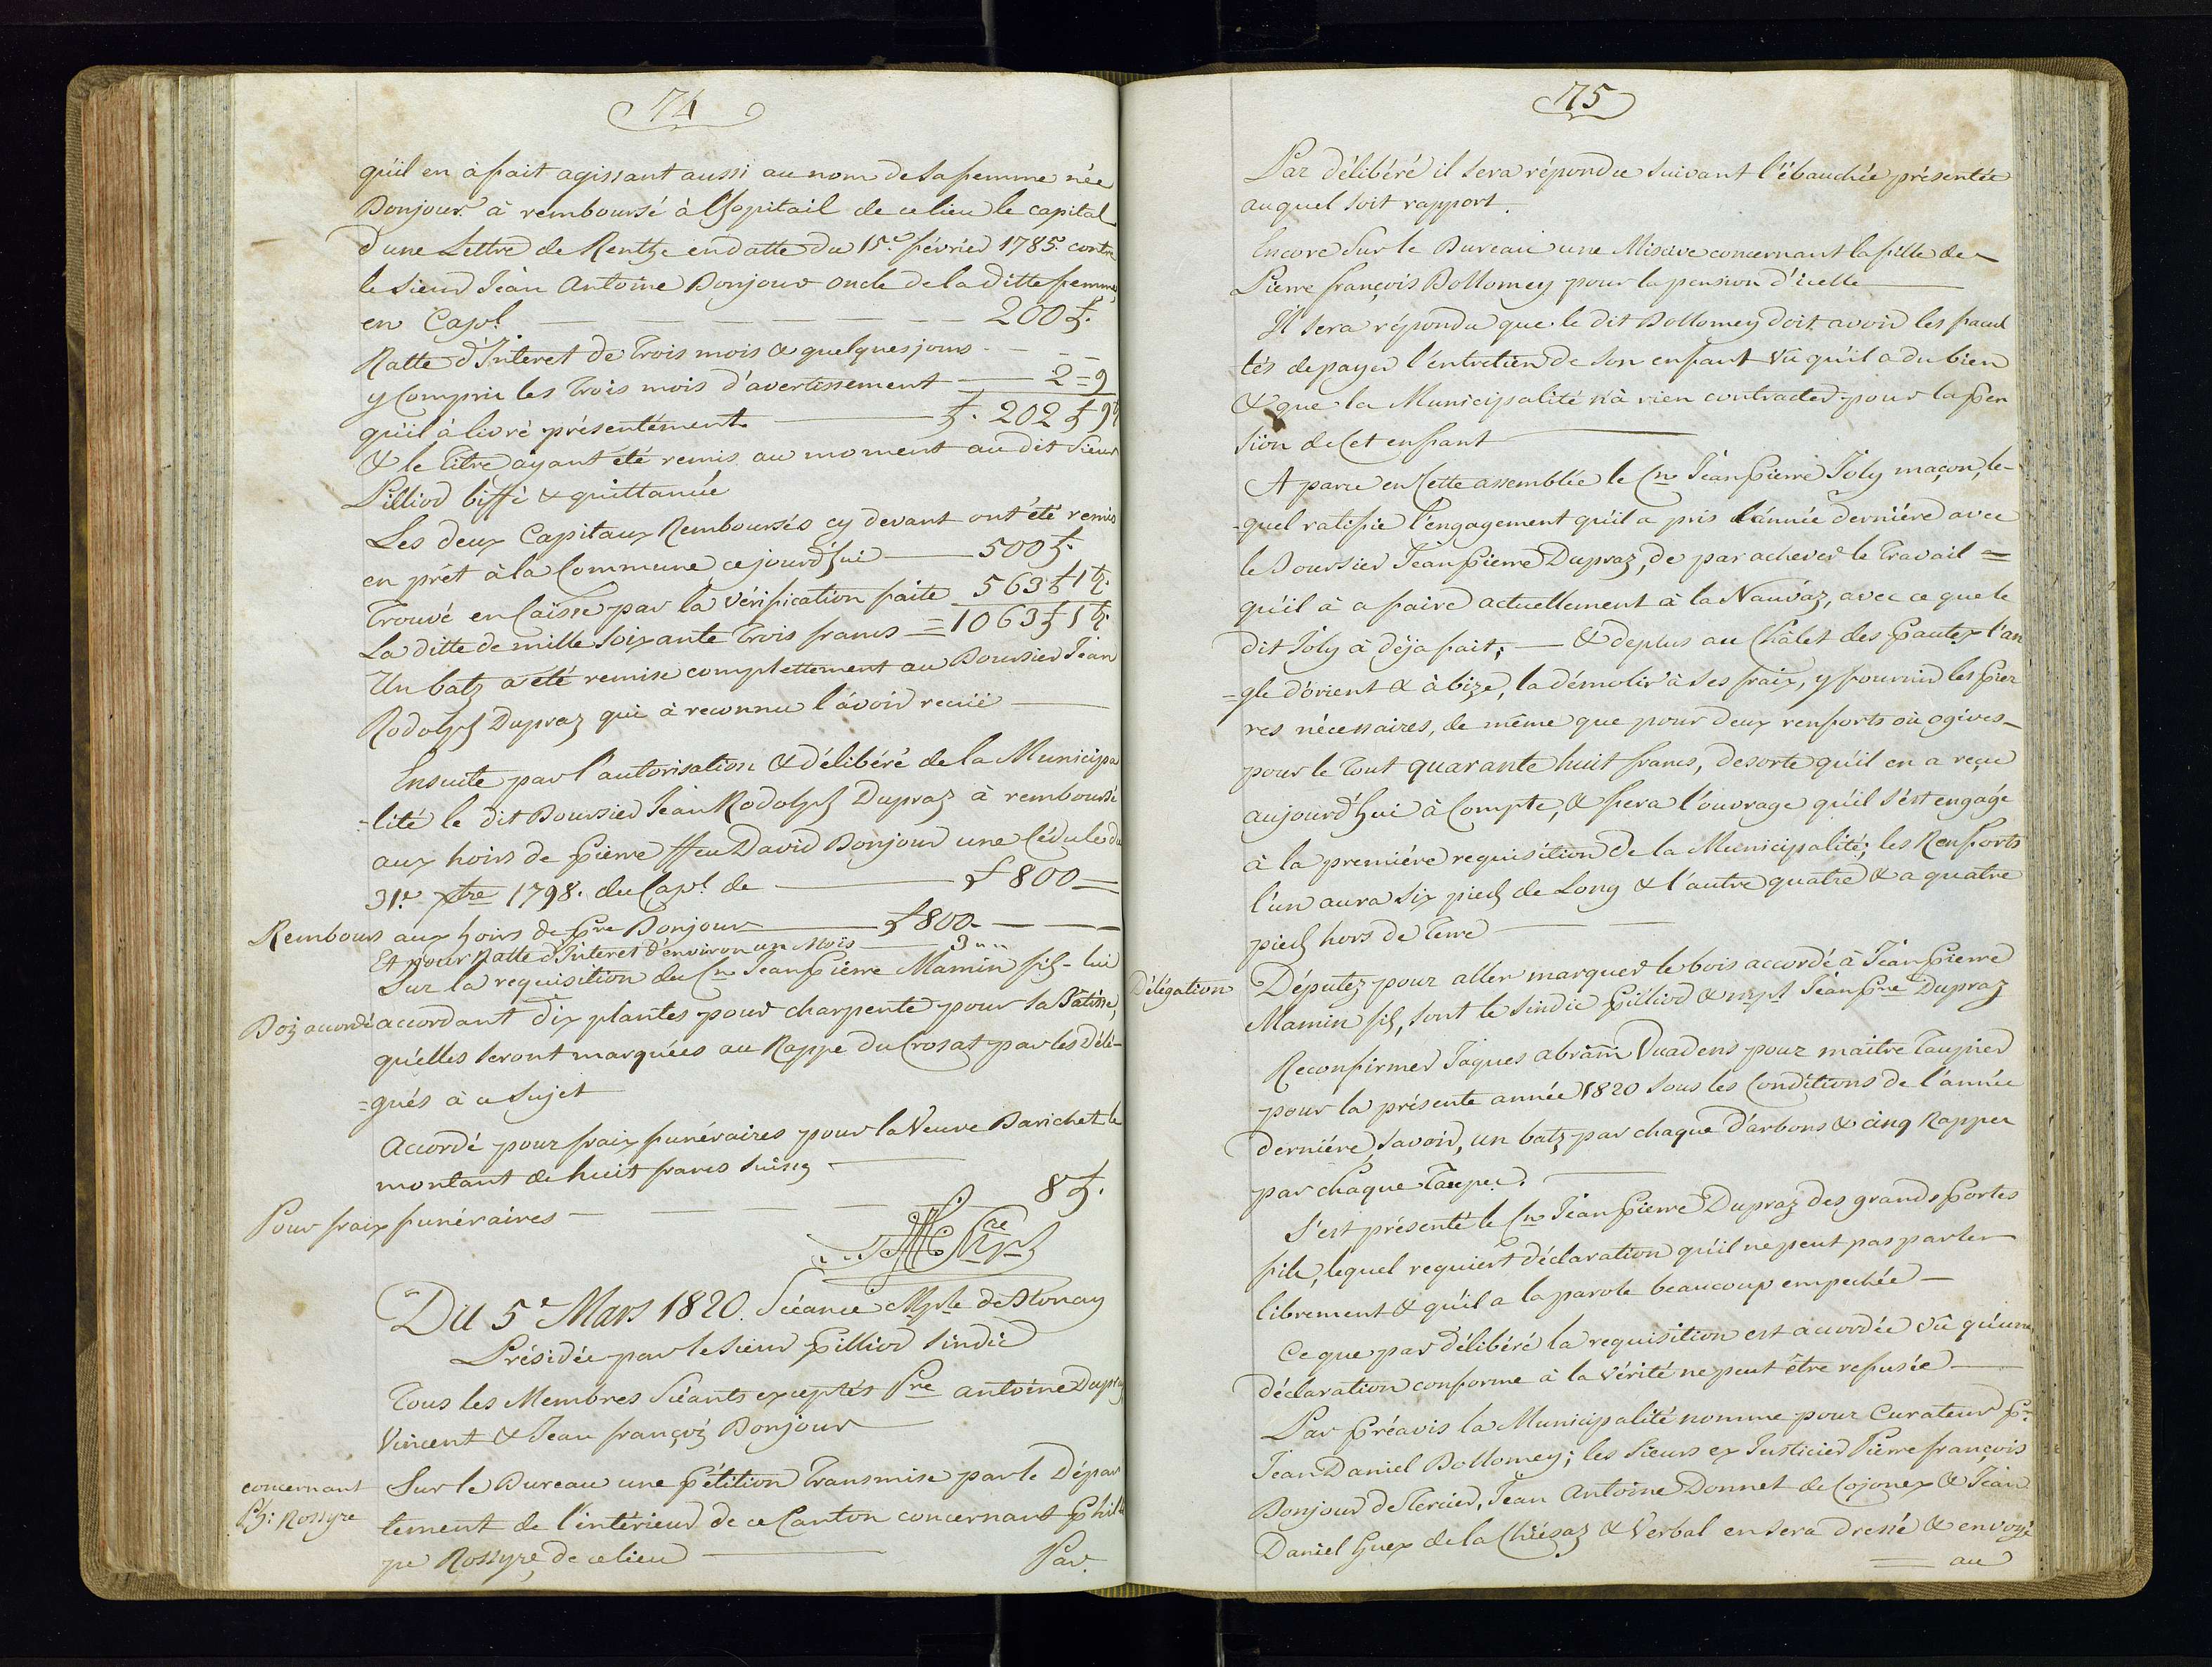 74
qu'il en à fait agissant aussi au nom de sa femme née
Bonjour à remboursé à lhopitail de ce lieu le capital
d'une Lettre de Rentze en datte du 15.e février 1785. contre
le sieur Jéan Antoine Bonjour oncle de la ditte femme,
en Cap.l 200 f.
Ratte d'Interet de Trois mois & quelques jours
y Compris les Trois mois d'avertissement 2 = 9
qu'il à livré présentément. f. 202 f 9
& le Titre ayant été remis au moment au dit Sieur
Pilliod biffé & quittancée
Les deux Capitaux Remboursés cy devant ont été remis
en prêt à la Commune cejourd'hui 500 f.
Trouvé en Caisse par la vérification faite 563 f 1
La ditte de mille soixante Trois francs = 1063 f 1
Un batz a été remise complettement au Boursier Jéan
Rodolph Dupraz qui à reconnu l'avoir recuë
Ensuite par l'autorisation & délibéré de la Municipa
=lité le dit Boursier Jéan Rodolph Dupraz à remboursé
aux hoirs de Pierre ffeu David Bonjour une Cédule du
31.e xbre 1798. du Cap.l de f 800 =
Rembours aux hoirs de Pre Bonjour f 800.
Et pour Ratte d'Interet d'environ un Mois 3 " "
Sur la requisition du Cn Jean Pierre Mamin fils - lui
Boiz accordé accordant dix plantes pour charpente pour sa Bâtisse,
qu'elles seront marquées au Rappe du Crosat par les Délé-
=gués à ce sujet
Accordé pour fraix funéraires pour la Veuve Barichet le
montant de huit francs suisses
Pour fraix funéraires 8 f.
Du 5.e Mars 1820. Séance Mple de Blonay
Présidée par le sieur Pilliod sindic
Tous les Membres Séants exceptés Pre antoine Dupraz
Vincent & Jean françoiz Bonjour
concernant
Ph: Rossyre
Sur le Bureau une pétition Transmise par le Dépar
tement de l'intérieur de ce Canton concernant Philip
pe Rossyre, de ce lieu
Par.
75
Par délibéré il sera répondu suivant l'ébauchée présentée
auquel soit rapport.
Encore sur le Bureau une Missive concernant la fille de
Pierre françois Bollomey pour la pension d'icelle
Il sera répondu que le dit Bollomey doit avoir les facul
tés de payer l'entretien de son enfant vû qu'il a du bien
& que la Municipalité n'à rien contracter pour la pen
sion de Cet enfant
A parue en Cette assemblée le Cn Jéan Pierre Joly maçon, le-
-quel ratifie l'engagement qu'il a pris l'année derniére avec
le Boursier Jéan Pierre Dupraz, de par achever le Travail =
qu'il à a faire actuellement à la Nauvaz, avec ce que le
dit Joly à déja fait; — & de plus au Châlet des Pautex l'an
=gle d'orient & à bize, la démolir à ses fraix, y fournir les pier
res nécessaires, de même que pour deux renforts où ogives
pour le Tout quarante huit francs, desorte qu'il en a reçu
aujourd'hui à Compte, & fera l'ouvrage qu'il s'est engagé
à la premiére requisition de la Municipalité; les Renforts
l'un aura six pieds de Long & l'autre quatre & a quatre
pieds hors de Terre
Délégation
Députez pour aller marquer le bois accordé à Jéan Pierre
Mamin fils, sont le sindic Pilliod & mpl Jéan Pre Dupraz
Reconfirmer Jaques abram Vuadens pour maitre Taupier
pour la présente année 1820 sous les Conditions de l'année
derniére, savoir, un batz par chaque d'arbons & cinq Rappes
par chaque Taupe.
S'est présenté le Cn Jéan Pierre Dupraz des grands Portes
fils, lequel requiert déclaration qu'il ne peut pas parler
librement & qu'il a la parole beaucoup empechée —
Ce que par délibéré la requisition est accordée vû qu'une
déclaration conforme à la vérité ne peut être refusée
Par Préavis la Municipalité nomme pour Curateur Pr.
Jean Daniel Bollomey; les Sieurs ex Justicier Pierre françois
Bonjour de Tercier, Jean Antoine Bonnet de Cojonex & Jéan
Daniel Guex de la Chiésaz & Verbal en sera dressé & envoyé
au